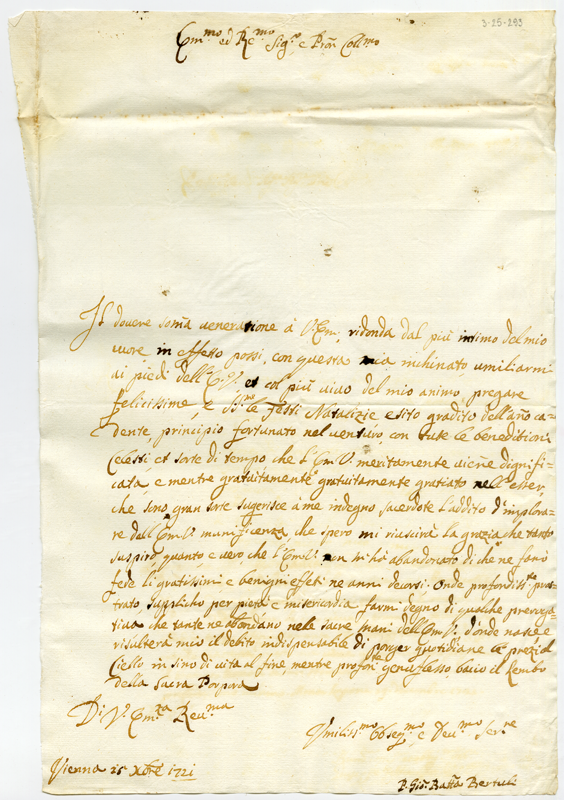 3-25-293
Em.mo ed Re.mo Sig.re e Pron Coll.mo
Il dovere som̃a veneratione à V. Em. ridonda dal più intimo del mio
cuore, in effetto possi, con questa mia inchinato umiliarmi
ai piedi dell'E.V. et col più vivo del mio animo, pregare
felicissime, e le Feste Natalizie esito gradito dell'año ca-
dente, principio fortunato nel venturo, con tute le beneditioni
Celesti, et sorte di tempo che l'Em.V. meritamente viene dignifi-
cata, e mentre gratuitamente gratuitamente gratiato nell'esser,
che sono, gran sorte sugerisce à me indegno sacerdote l'addito d'implora-
re dall'Em.V. munificenza, che spero mi riuscirà la grazia che tanto
suspiro, quanto, e vero che l'Em.V. non m'hà abandonato di che ne fano
fede li gratissimi e benigni effeti ne anni decorsi. Onde profondiss.te pros-
trato, supplicho per pietà e misericordia farmi degno di qualche preroga-
tiva che tante ne abondano nele sacre mani dell'Em.V. d'onde nasce e
risulterà mio il debito indispensabile di porger quotidiane le prezi al
Ciello in sino di vita al fine, mentre genuflesso bacio il Lembo
della Sacra Porpora
Di V. Em.za Reu.ma
Vmiliss.mo Obseq.mo, e Deu.mo Ser.re
Vienna 25 Xbre 1721
P. Gio. Batta Bertuli